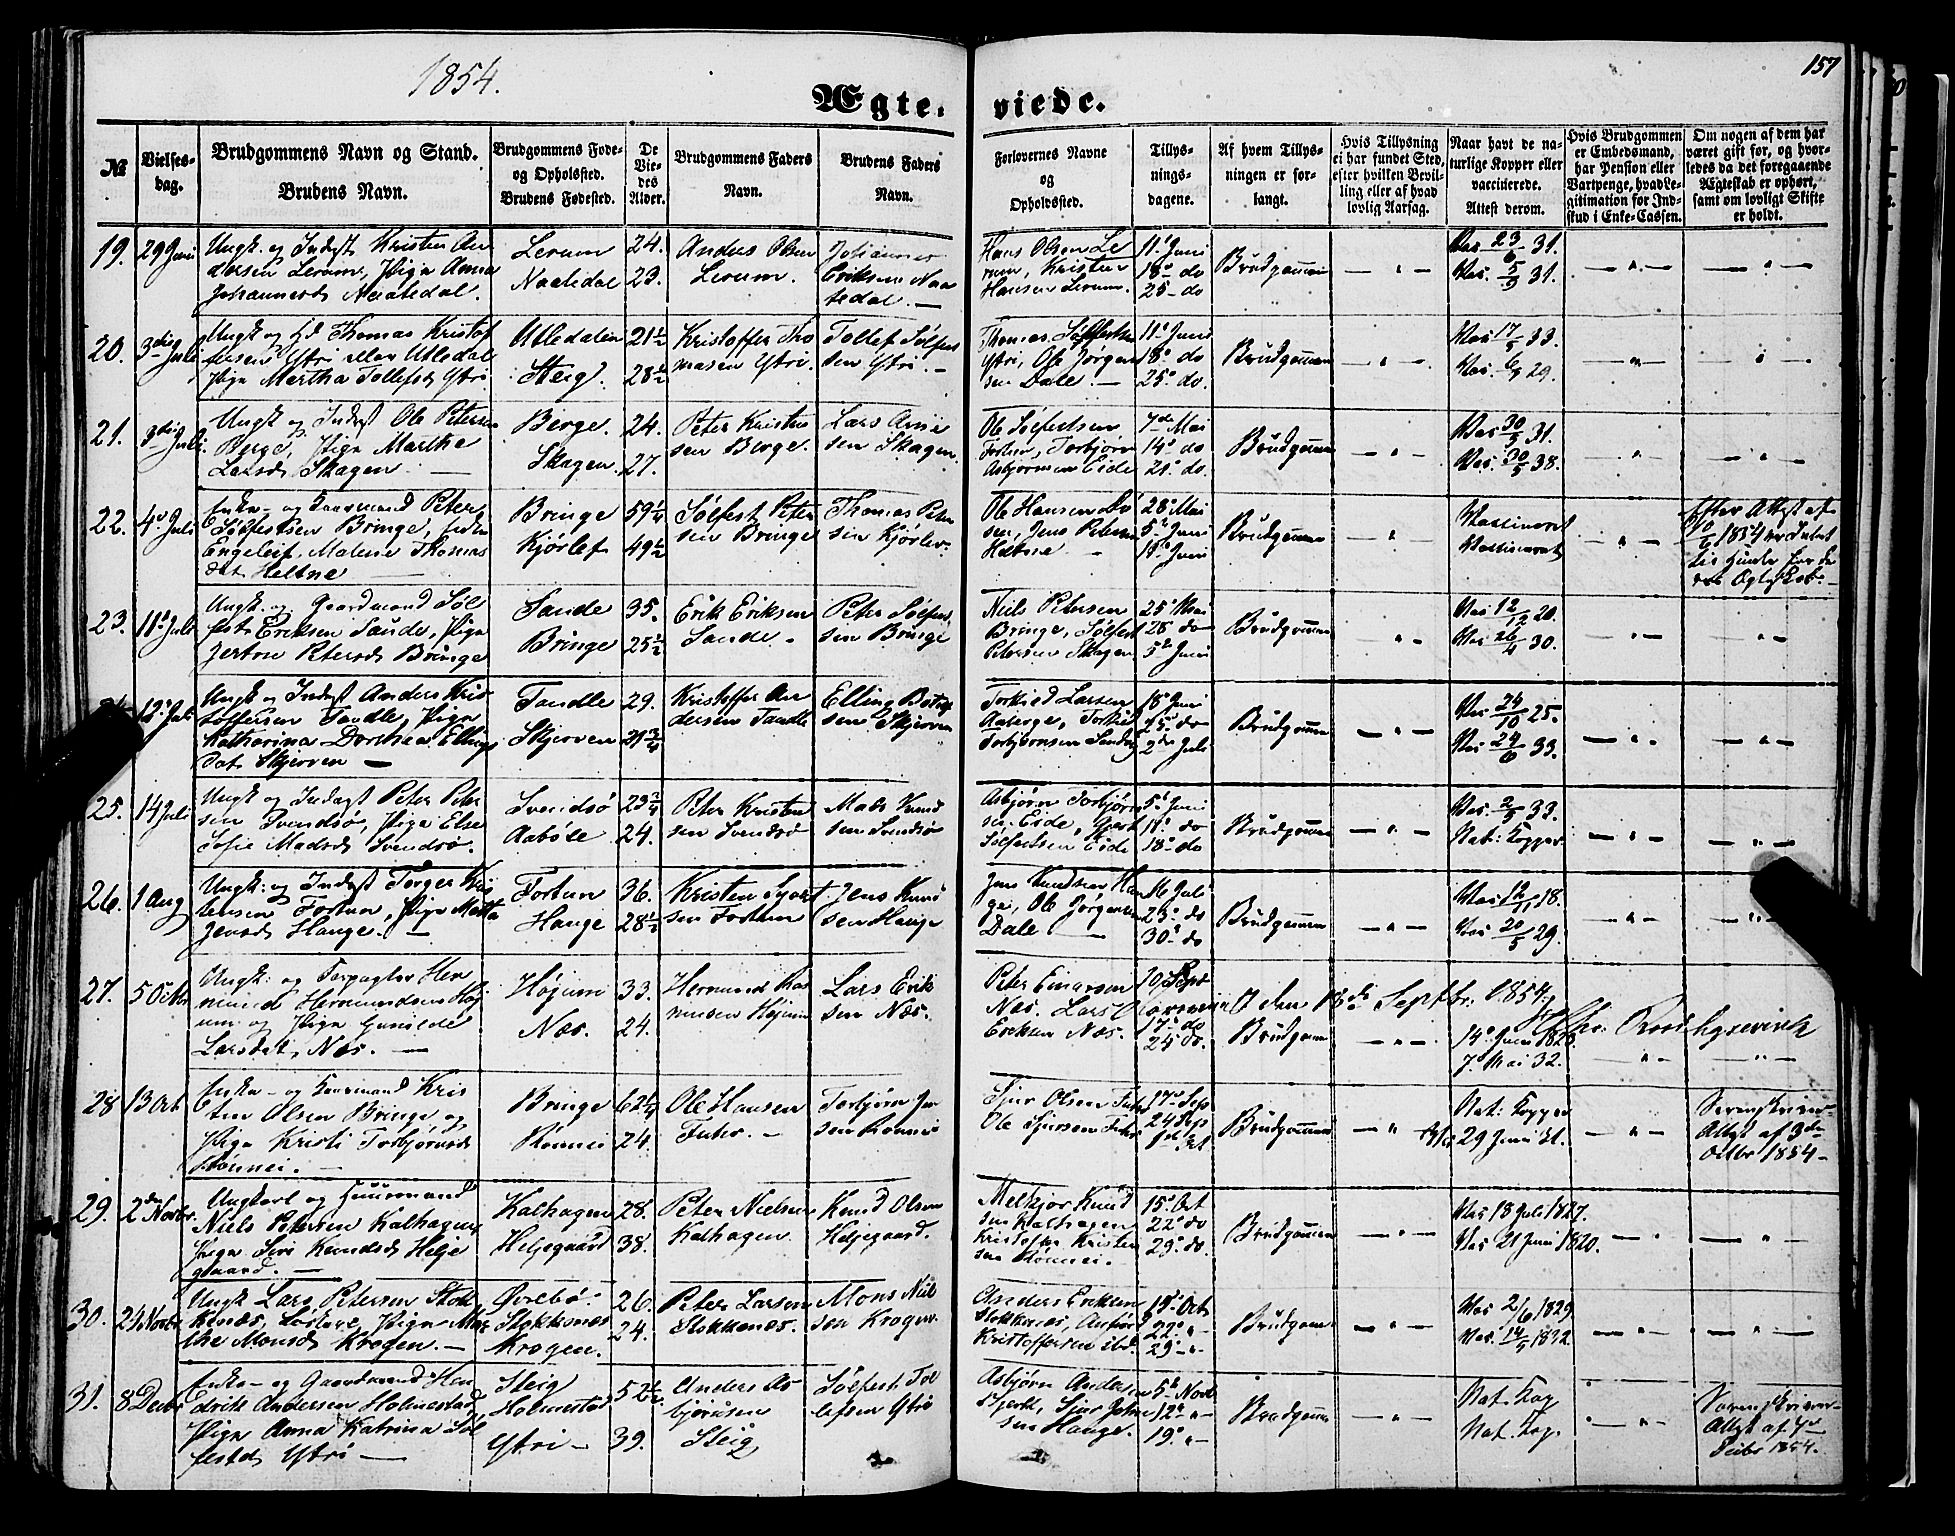 1854.
157
Ægte=
viede.
№
Vielses-
dag.
Brudgommens Navn og Stand.
Brudens Navn.
Brudgommens Føde-
og Opholdssted.
Brudens Fødested.
De
Vie-
des
Alder.
Brudgommens Faders
Navn.
Brudens Faders
Navn.
Forlovernes Navne
og
Opholdssted.
Tillys-
nings-
dagene.
Af hvem Tillys-
ningen er for-
langt.
Hvis Tillysning
ei har fundet Sted,
efter hvilken Bevil-
ling eller af hvad
lovlig Aarsag.
Naar havt de na-
turlige Kopper eller
vaccinerede.
Attest derom.
Hvis Brudgommen
er Embedsmand,
har Pension eller
Vartpenge, hvad Le-
gitimation for Ind-
skud i Enke-Cassen.
Om nogen af dem har
været gift før, og hvor-
ledes da det foregaaende
Ægteskab er ophørt,
samt om lovligt Skifte
er holdt.
19. 29 Juni
Ungk. og Inderst Kristen An
dersen Lerum, Pige Anna
Johannesd Naatedal.
Lerum
Naatedal
24.
23.
Anders Olsen
Lerum.
Johannes
Eriksen Naa
tedal
Hans Olsen Le
rum, Kristen
Hansen Lerum.
11' Juni
18' do
25 do
Brudgommen
Vac. 23/6 31.
Vac. 5/9 31.
20. 3die Juli
Ungk og Thomas Kristof
fersen Ytri eller Utledal
Pige Martha Tollefsd Ytri
Utledalen
Steig.
21 1/2
28 1/2
Kristoffer Tho
masen Ytri.
Tollef Sølfest
sen Ytri.
Thomas Sølfestsen
Ytri, Ole Jørgen
sen Dale.
11' Juni
18' do
25' do.
Brudgommen
Vac. 17/5 33.
Vac. 6/9 29.
21. 3die Juli
Ungk og Inderst Ole Petersen
Berge, Pige Martha
Larsd Skagen.
Berge.
Skagen
24.
27.
Peter Kristen
sen Berge.
Lars Arne
sen Skagen.
Ole Sølfestsen
Torbjørn
Asbjørnsen Eide
7de Mai
14' do
21' do.
Brudgommen
Vac 30/5 31.
Vac. 30/5 38.
22. 4' Juli
Enke- og Huusmand Peter
Sølfestsen Bringe, Enken
Engeleif, Malene Thomas
dat Heltne
Bringe
Kjørlet
59 1/4
49 1/2
Sølfest Peter
sen Bringe
Thomas Peter
sen Kjørlev.
Ole Hansen
sen, Jens Petersen
Heltne
28' Mai
5' Juni
11' Juni
Brudgommen
Vaccineret
Vaccineret
Efter Attest af
1854 er Intet
til Hinder for de
res Ægteskab.
23. 11' Juli
Ungk. og Gaardmand Søl
fest Eriksen Sande, Pige
Jertrue Petersd Bringe
Sande
Bringe
35.
25 1/2
Erik Eriksen
Sande.
Peter Sølfest
sen Bringe
Niels Petersen
Bringe, Sølfest
Petersen Skagen
25' Mai
28 do
5' Juni
Brudgommen
Vac 12/12 20.
Vac. 26/4 30.
12' Juli
Ungk og Inderst Anders Kris
toffersen Tandle, Pige
Katharina Dorthea Ellings
dat Skjerven
Tandle
Skjerven
29.
21 3/4
Kristoffer An
dersen Tandle
Elling
sen Skjerven
Torkild Larsen
Aaberge, Torkild
Torbjørnsen
18' Juni
25' do
2den Juli
Brudgommen
Vac 24/10 25.
Vac. 24/6 33.
25. 14 Juli
Ungk og Inderst Peter Peter
sen Svendsø, Pige Else
Sofie Madsd Svendsø.
Svendsø
Aabøle
23 3/4
24.
Peter Kristen
sen Svendsø
Mads Knud
sen Svendsø
Asbjørn Torbjørn
sen Eide, Gjert
Sølfestsen Eide
5' Juni
11' do
18' do
Brudgommen
Vac. 2/9 33.
Nat: Kopper
26. 1 Aug
Ungk: og Inderst Torger Kris
tensen Fortun, Pige Metta
Jensd Hauge.
Fortun
Hauge
36.
28 1/2
Kristen Sjurt
sen Fortun
Jens Knud
sen Hauge
Jens Knudsen Hau
ge, Ole Jørgensen
Dale
16 Juli
23' do
30' do
Brudgommen
Vac 12/11 18.
Vac 20/5 29.
27. 5 Octbr
Ungk: og Forpagter Her
mund Hermundsen Høj
um og Pige Gunilde
Larsdat, Næs.
Højum
Næs.
33.
24.
Hermund Ras
musen Højum
Lars Erik
sen Næs.
Peter Einersen
Næs. Lars
Eriksen Næs.
10 Sept
17' do
24 do.
den 13de Septbr. 1854.
Brudgommen
14' Juni 1828
7' Mai 32.
28 13 Oct
Enke- og Huusmand Kris
ten Olsen Bringe og
Pige Kristi Torbjørnsd
Rønnei.
Bringe
Rønnei
62 1/4
24.
Ole Hansen
Fuhr.
Torbjørn Jen
sen Rønnei
Sjur Olsen Fuhr
Ole Sjursen Fuhr
17' Sep
24 Sep
1ste Oct
Brudgommen
Nat: Kopper
29 Juni 31.
Sorenskriver-
Attest af 3die
Octbr 1854
29. 2den Novbr.
Ungkarl og Huusmand
Niels Petersen Kalhagen,
Pige Siri Knudsd Helje
gaard.
Kalhagen
Heljegaard
28.
38.
Peter Nielsen
Kalhagen
Knud Olsen
Heljegaard.
Melkjor Knud
sen Kalhagen
Kristoffer Kristen
sen Rønnei.
15' Oct
22' do
29' do.
Brudgommen
Vac 18 Juli 1827.
Vac 21 Juni 1820.
30. 2' Novbr
Ungk Lars Petersen Stok
kenæs, Pige Mar
the Monsd Krogen.
Øvrebø.
Stokkenæs
Krogen.
26.
24.
Peter Larsen
Stokkenæs.
Mons Niel
sen Krogen.
Anders Eriksen
Stokkenæs,
Kristoffersen ibd.
15' Oct
22' "
29' "
Brudgommen
Vac 2/6 1829
Vac. 14/5 1832.
31. 8 Decbr
Enke- og Gaardmand Hen
drik Andersen Holmestad,
Pige Anna Katrina Søl
festsd Ytri
Steig
Holmestad
Ytri
52 1/2
39.
Anders As
bjørnsen
Steig
Sølfest Tol
lefsen Ytri
Asbjørn Andersen
Bjerk, Sjur Johan
sen Hauge.
5' Novbr
12' "
19' "
Brudgommen
Nat. Kop
Nat. Kop.
Sorenskriver-
Attest af 4'
Decbr 1854.